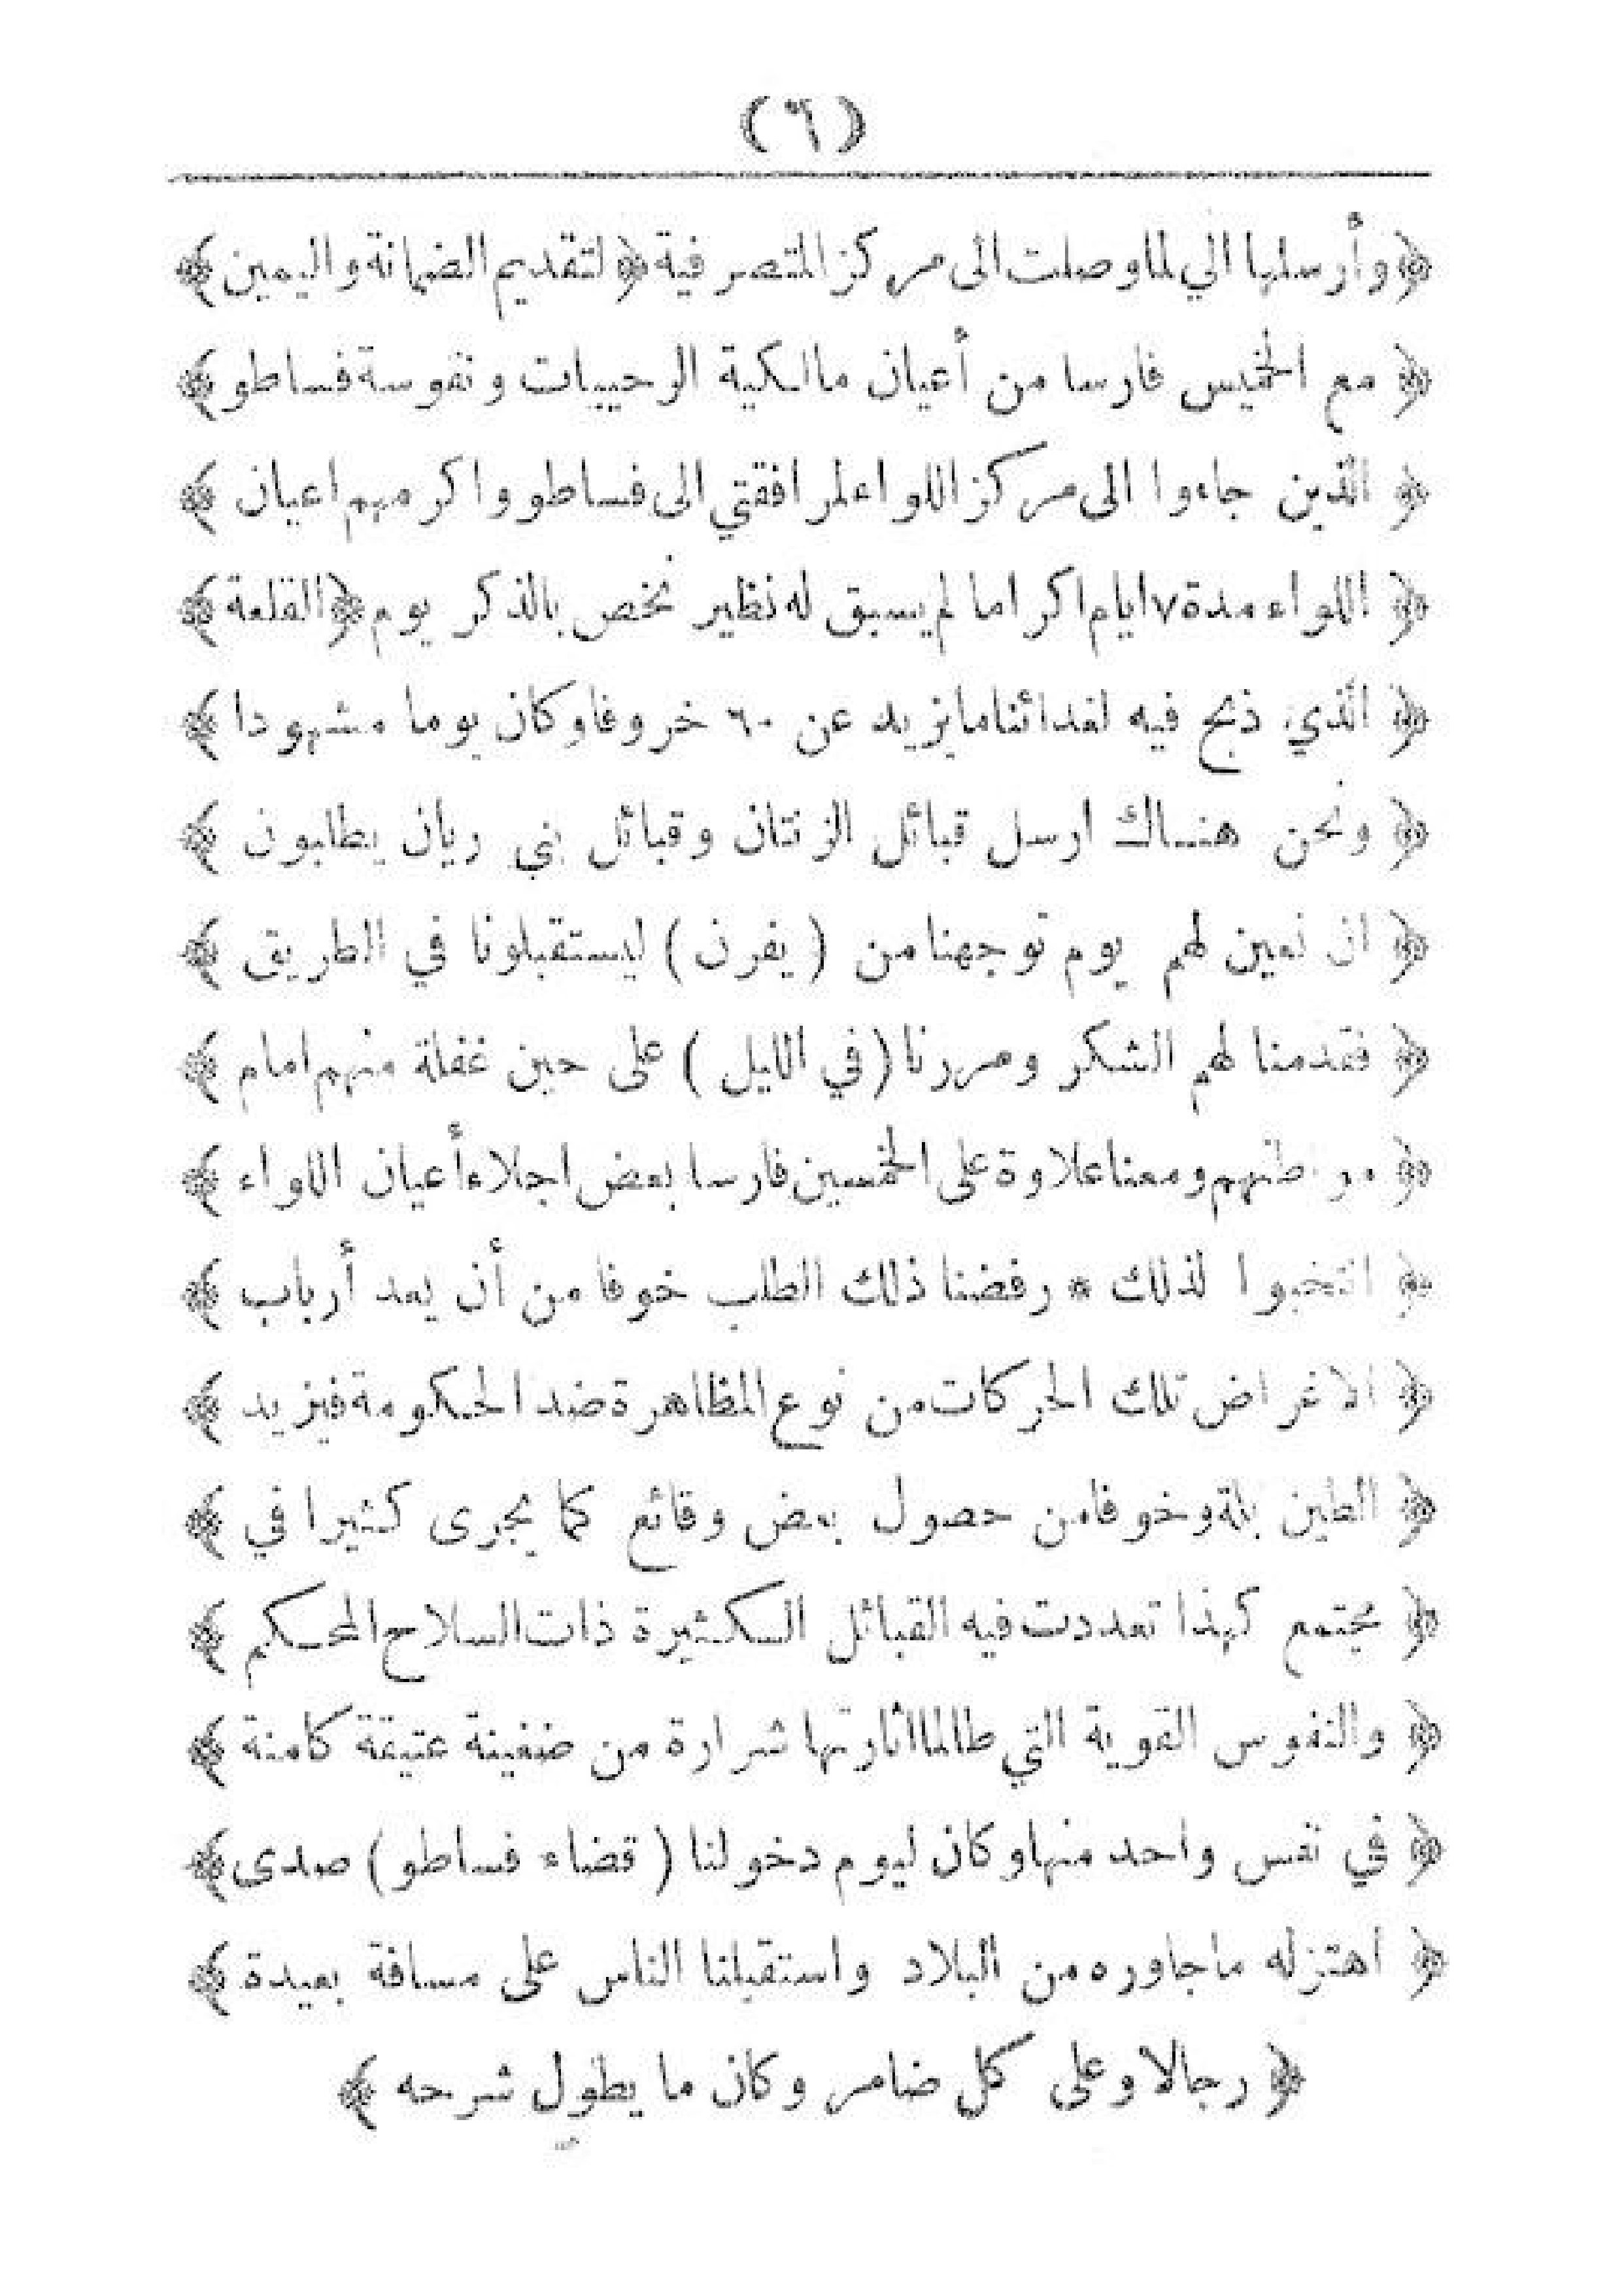 (٦)
﴿وأرسلها الي لما وصلت الى مركز المتصرفية﴿لتقديم الضمانة واليمين﴾
﴿ مع الخمسين فارسا من أعيان مالكية الرحيبات ونفوسة فساطو﴾
﴿ الذين جاءوا الى مركز اللواء لمرافقتي الى فساطو واكرمهم اعيان ﴾
﴿ اللواء مدة ٧ ايام اكراما لم يسبق له نظير نخص بالذكر يوم ﴿القلعة﴾
﴿ الذي ذبح فيه لغدائنا ما يزيد عن ٦٠ خروفا وكان يوما مشهودا ﴾
﴿ ونحن هناك ارسل قبائل الزنتان وقبائل بني ريان يطلبون ﴾
﴿ ان نعين لهم يوم توجهنا من ( يفرن ) ليستقبلونا في الطريق ﴾
﴿ فقدمنا لهم الشكر ومررنا (في الليل ) على حين غفلة منهم امام ﴾
﴿ مواطنهم ومعنا علاوة على الخمسين فارسا بعض اجلاء أعيان اللواء ﴾
﴿ انتخبوا لذلك * رفضنا ذلك الطلب خوفا من أن يعد أرباب ﴾
﴿ الاغراض تلك الحركات من نوع المظاهرة ضد الحكومة فيزيد ﴾
﴿ الطين بلة وخوفا من حصول بعض وقائع كما يجرى كثيرا في ﴾
﴿ مجتمع كهذا تعددت فيه القبائل الكثيرة ذات السلاح المحكم ﴾
﴿ والنفوس القوية التي طالما اثارتها شرارة من ضغينة عتيقة كامنة ﴾
﴿ في نفس واحد منها وكان ليوم دخولنا ( قضاء فساطو ) صدى﴾
﴿ اهتز له ما جاوره من البلاد واستقبلنا الناس على مسافة بعيدة ﴾
﴿ رجالا وعلى كل ضامر وكان ما يطول شرحه ﴾